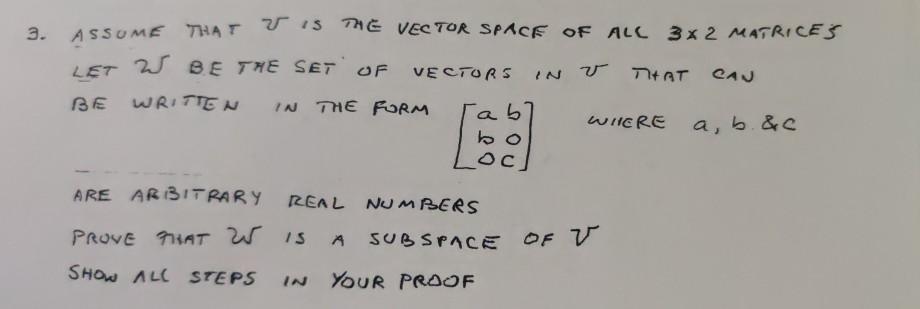 3. ASSUME THAT V IS THE VECTOR SPACE OF ALL 3x2 MATRICES
LET W BE THE SET OF VECTORS IN V THAT CAN
BE WRITTEN IN THE FORM [a b
b 0
0 c] WHERE a, b & c
ARE ARBITRARY REAL NUMBERS
PROVE THAT W IS A SUBSPACE OF V
SHOW ALL STEPS IN YOUR PROOF